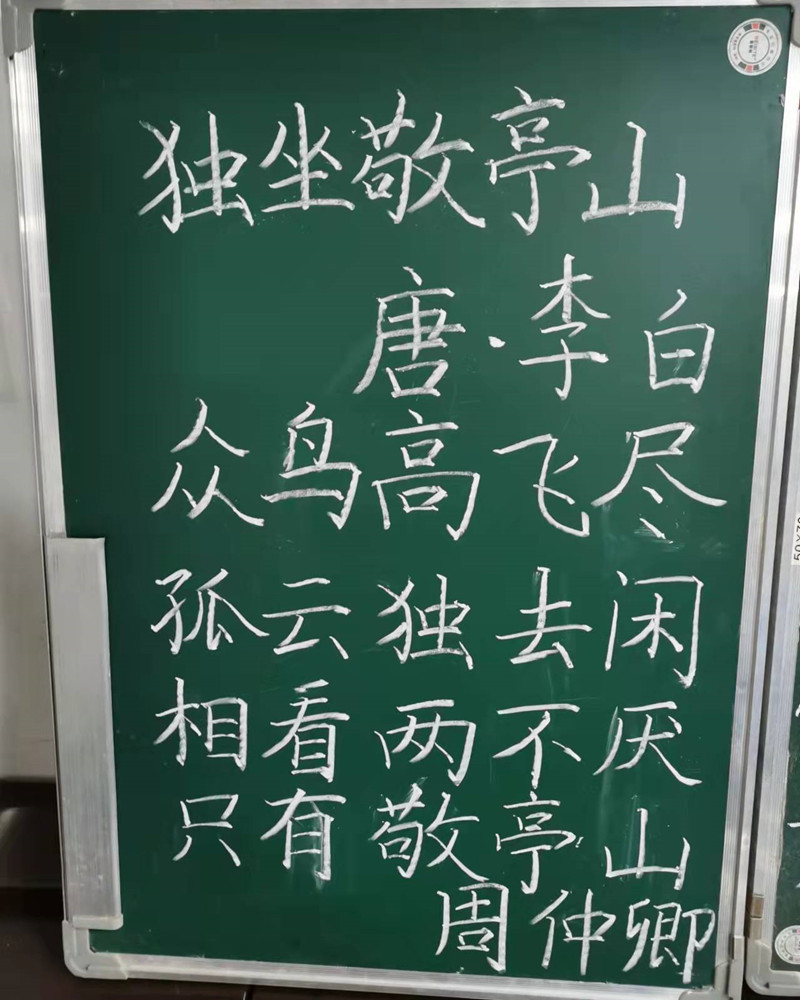 独坐敬亭山
唐·李白
众鸟高飞尽
孤云独去闲
相看两不厌
只有敬亭山
周仲卿